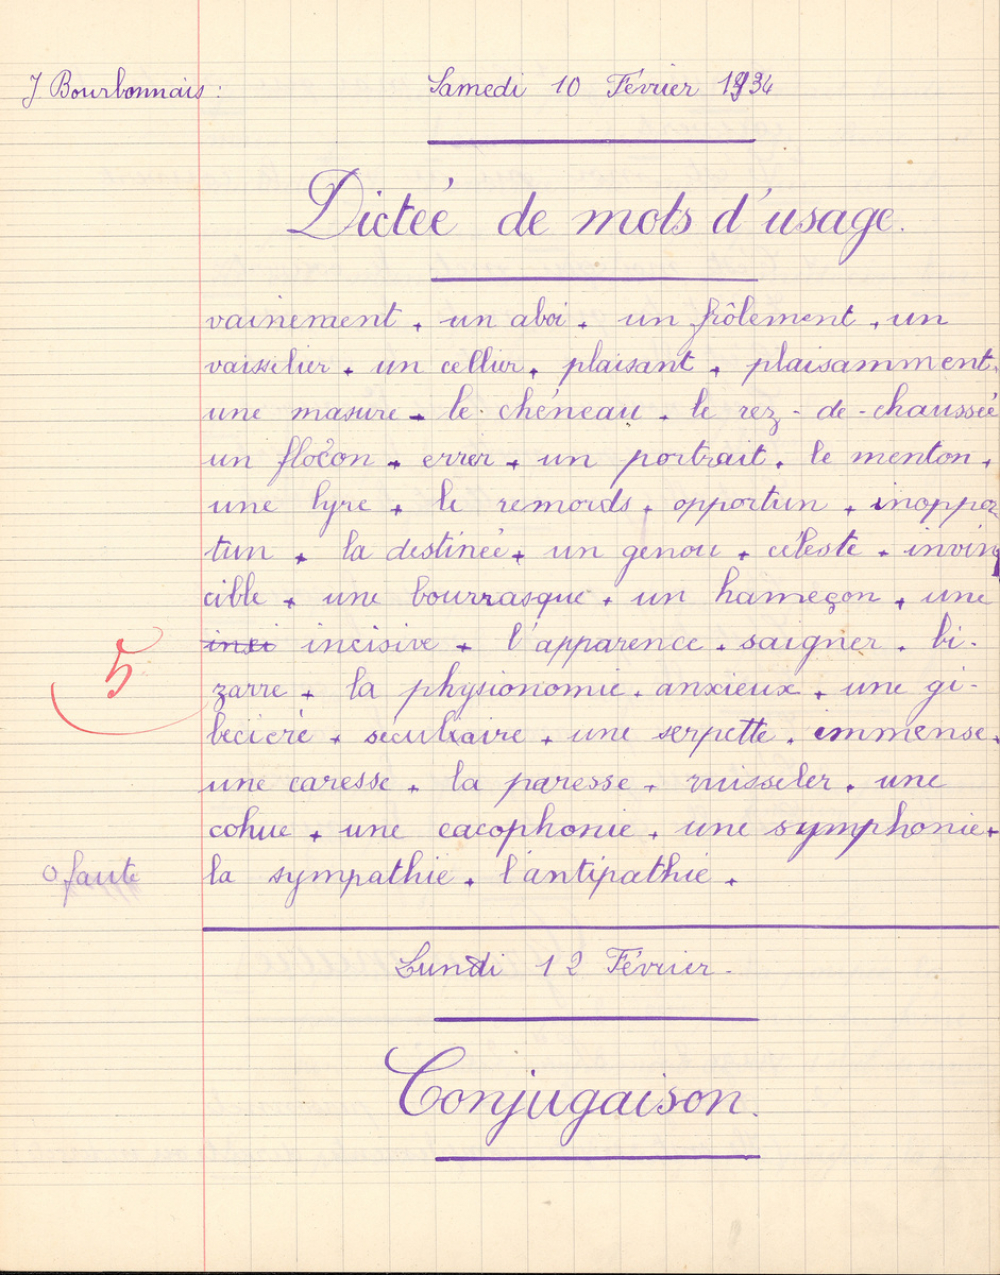 J Bourbonnais :
Samedi 10 Février 1934
Dictée de mots d'usage.
vainement . un aboi . un frôlement . un
vaisselier . un cellier . plaisant . plaisamment .
une masure . le chéneau . le rez-de-chaussée
un flocon . errer . un portrait . le menton .
une lyre . le remords . opportun . inoppor
tun . la destinée . un genou . céleste . invin
cible . une bourrasque . un hameçon . une
inci incisive . l'apparence . saigner . bi-
zarre . la physionomie . anxieux . une gi-
becière . séculaire . une serpette . immense .
une caresse . la paresse . ruisseler . une
cohue . une cacophonie . une symphonie .
la sympathie . l'antipathie .
5
0 faute
Lundi 12 Février .
Conjugaison .